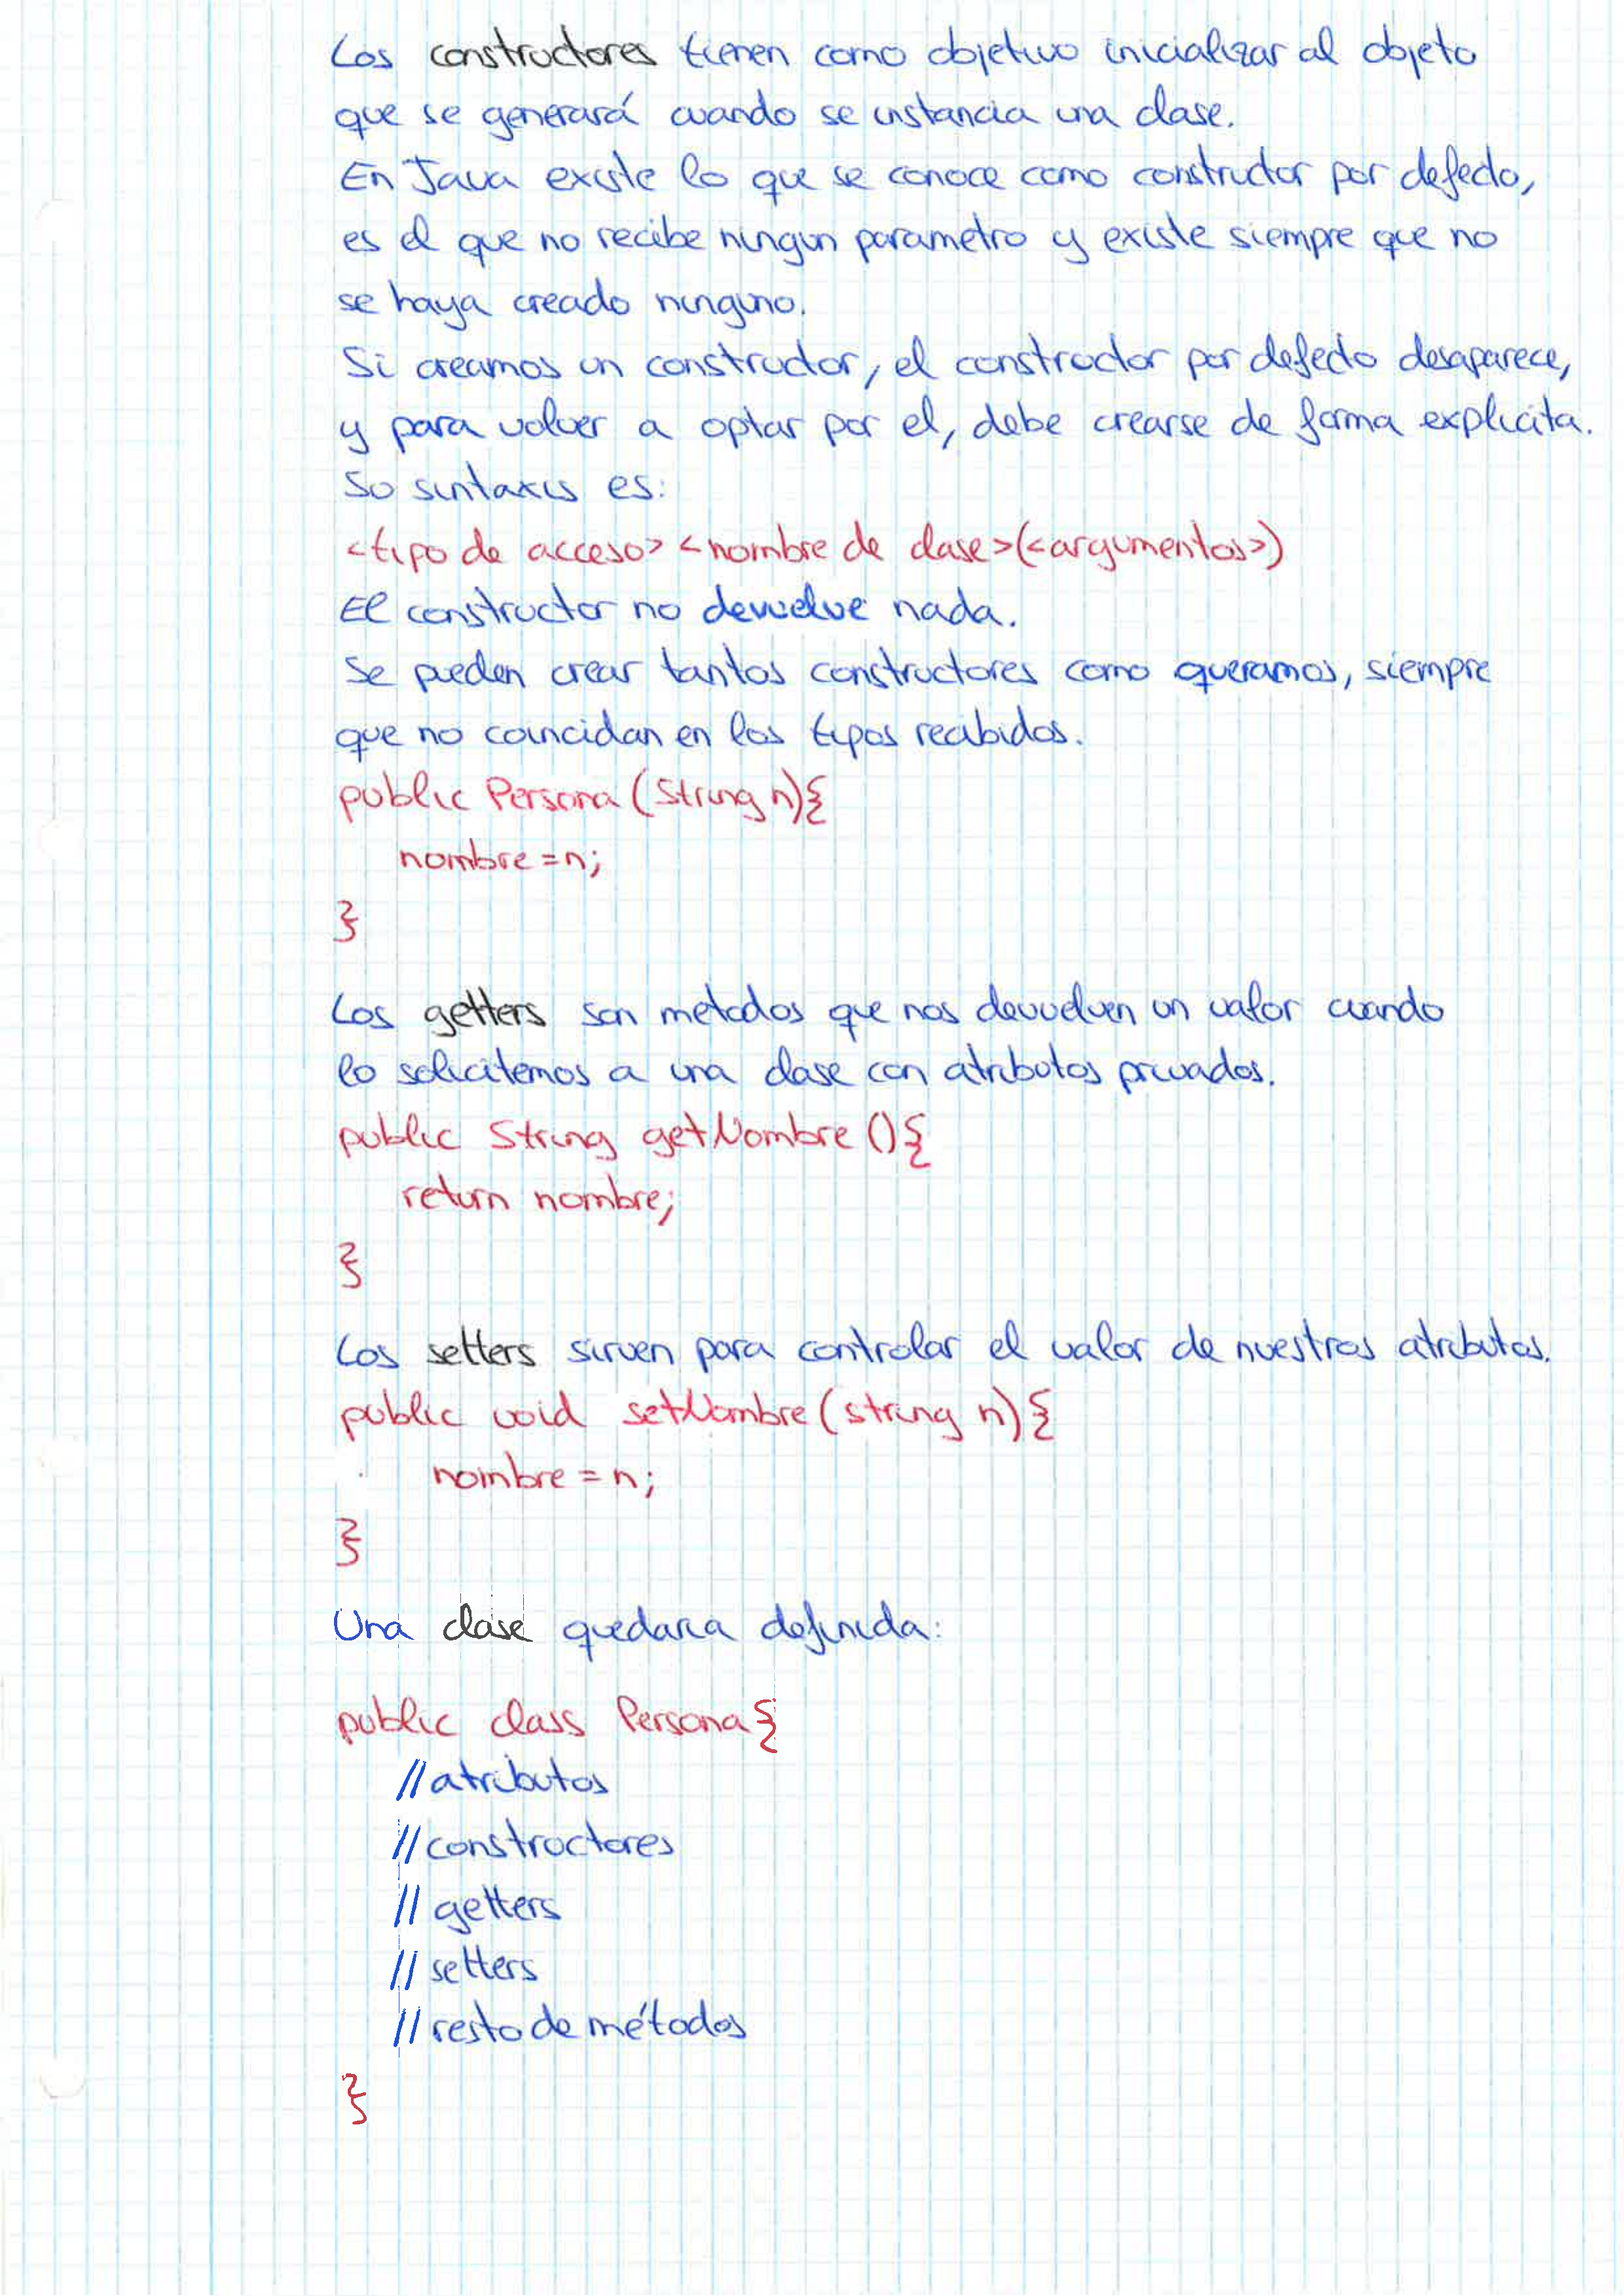 Los constructores tienen como objetivo inicializar al objeto
que se generará cuando se instancia una clase.
En Java existe lo que se conoce como constructor por defecto,
es el que no recibe ningun parametro y existe siempre que no
se haya creado ninguno.
Si creamos un constructor, el constructor por defecto desaparece,
y para volver a optar por el, debe crearse de forma explicita.
Su sintaxis es:
<tipo de acceso> <nombre de clase>(<argumentos>)
El constructor no devuelve nada.
Se pueden crear tantos constructores como queramos, siempre
que no coincidan en los tipos recibidos.
public Persona (String n){
nombre=n;
}
Los getters son metodos que nos devuelven un valor cuando
lo solicitemos a una clase con atributos privados.
public String getNombre (){
return nombre;
}
Los setters sirven para controlar el valor de nuestros atributos.
public void setNombre (string n) {
nombre = n;
}
Una clase quedaria definida:
public class Persona {
//atributos
//constructores
// getters
// setters
// resto de métodos
}